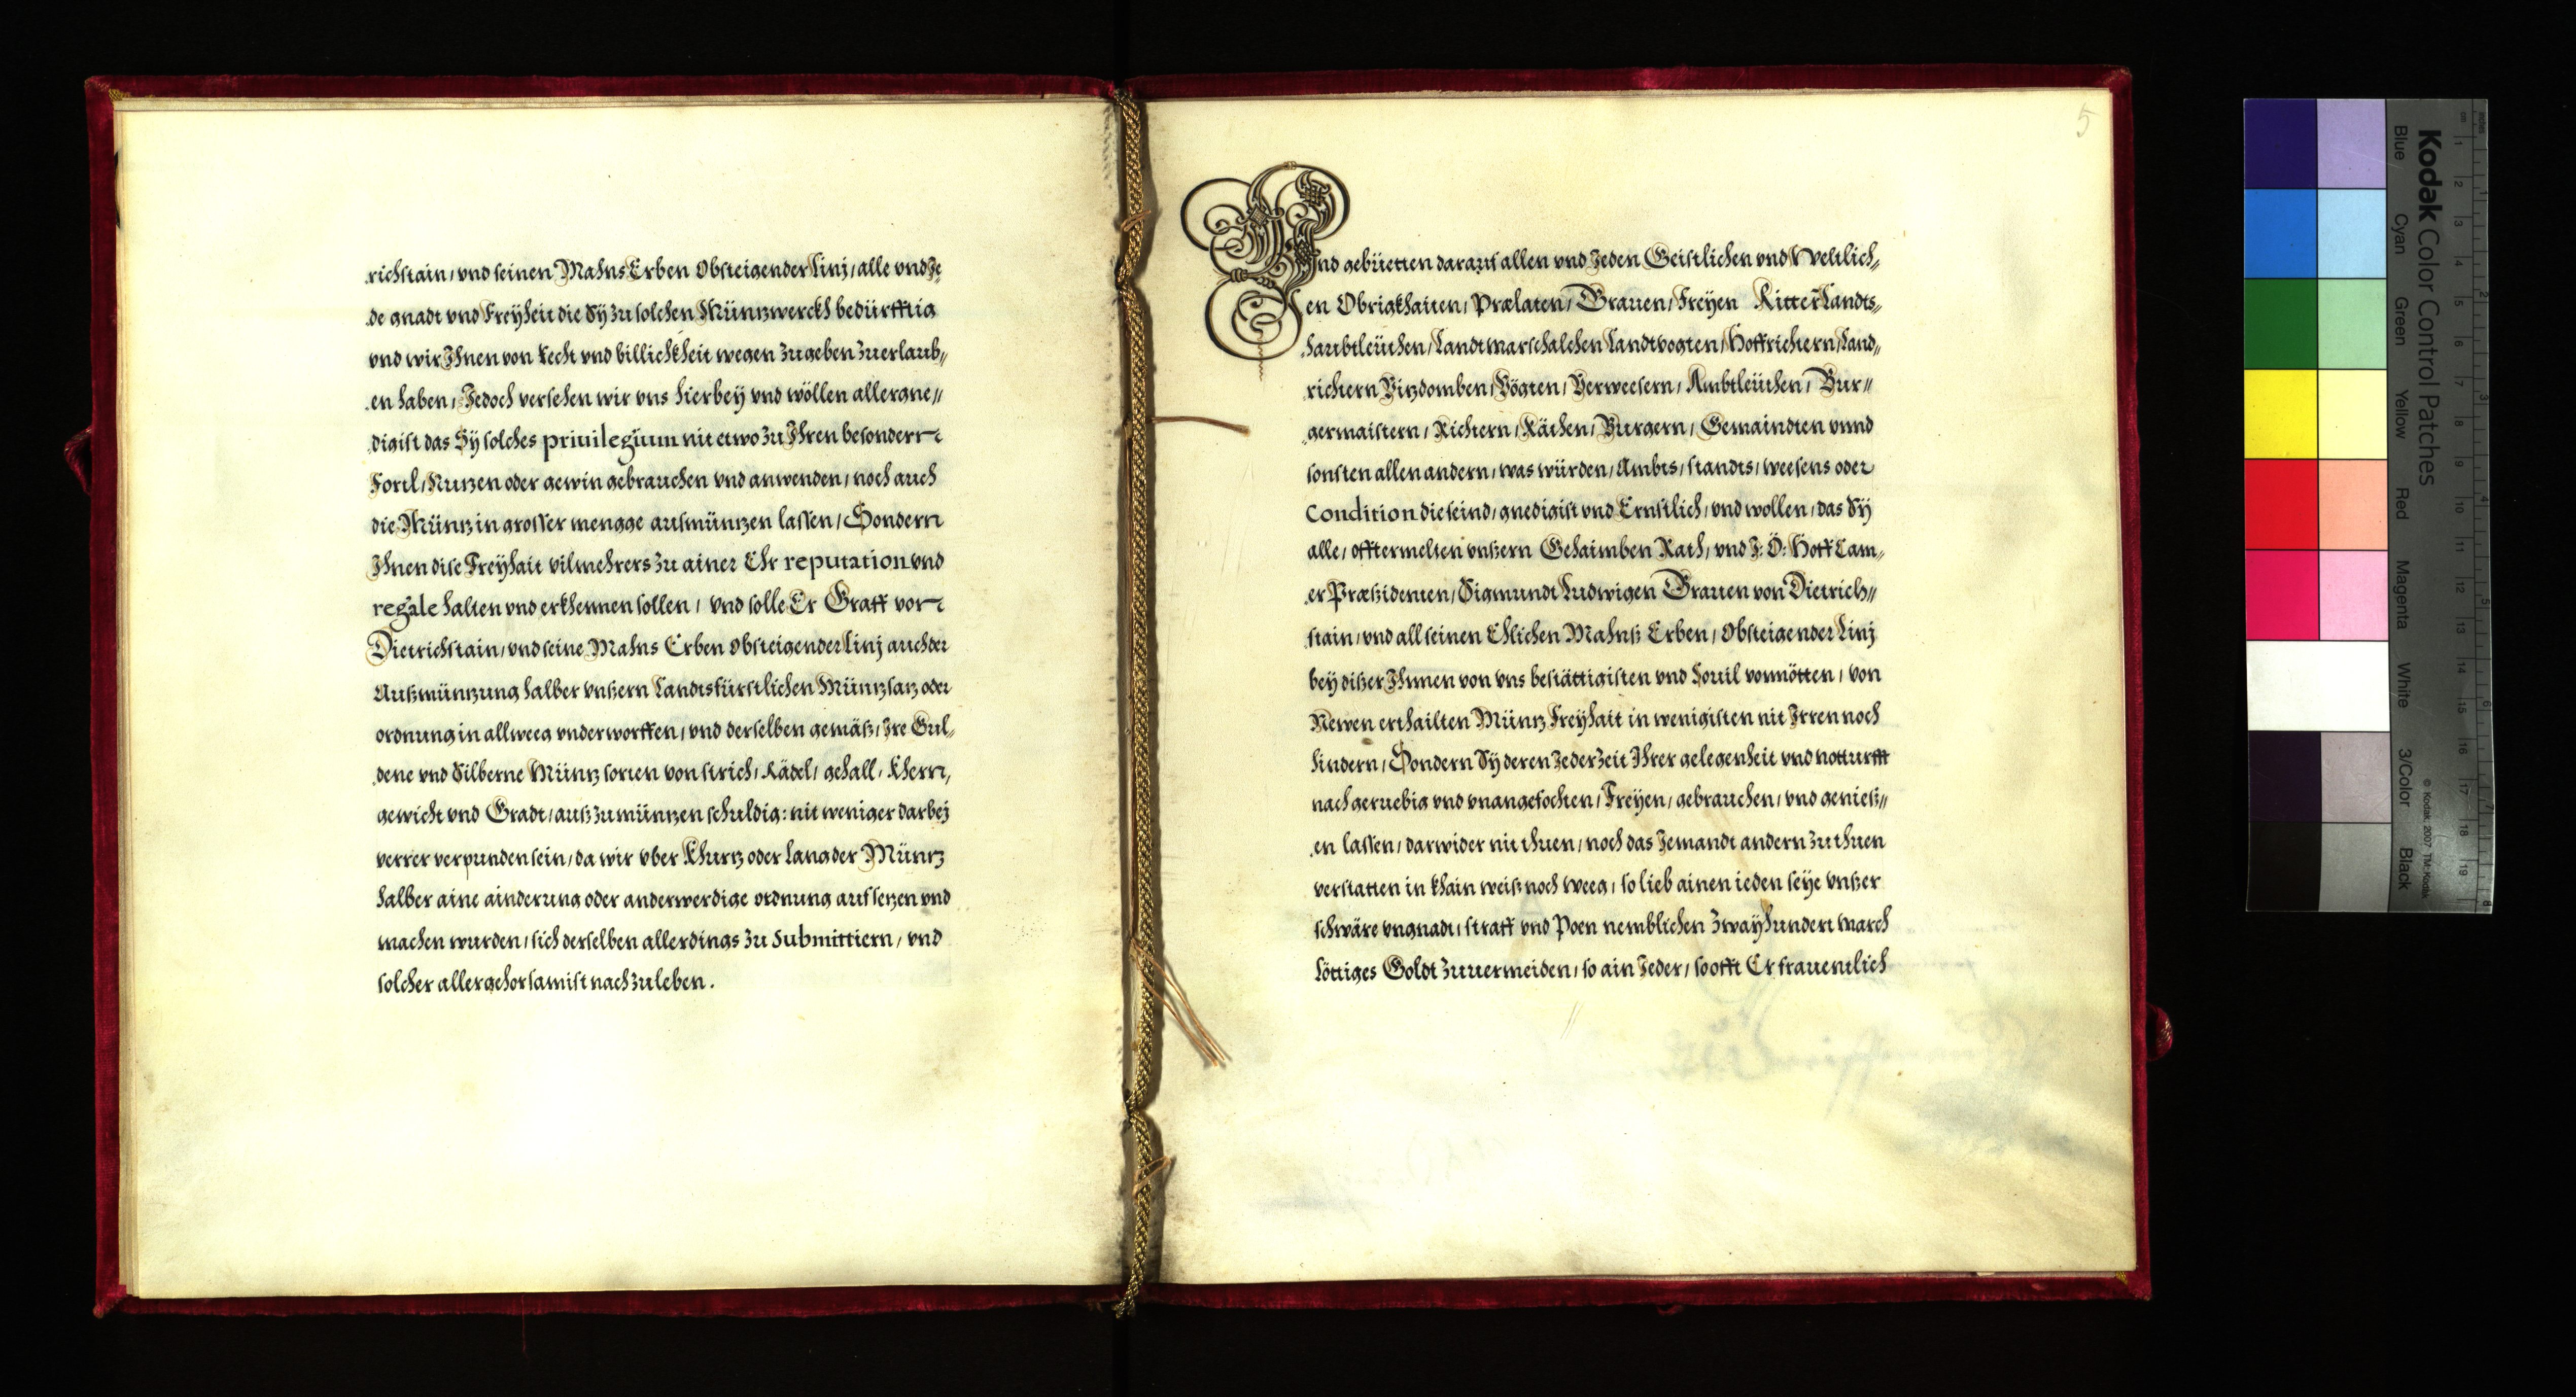 richstain, vnd seinen Mahns Erben Obsteigender Linj, alle vnd Je„
de gnadt vnd Freÿheit die Sÿ zu solchen Müntzwerckh bedürfftig
vnd wir Ihnen von Recht vnd billichkheit wegen zugeben zuerlaub„
en haben, Jedoch versehen wir vns hierbeÿ vnd wöllen allergne„
digist das Sÿ solches priuilegium nit etwo zu Ihren besondern
Fortl, Nutzen oder gewin gebrauchen vnd anwenden, noch auch
die Müntz in grosser mengge ausmüntzen lassen, Sondern
Ihnen dise Freÿhait vilmehrers zu ainer Ehr reputation vnd
regale halten vnd erkhennen sollen, vnd solle Er Graff von
Dietrichstain, vnd seine Mahns Erben Obsteigender Linj auch der
Außmüntzung halber vnßern Landtsfürstlichen Müntzsatz oder
ordnung in allweeg vnderworffen, vnd derselben gemäß, Ire Gul„
dene vnd Silberne Müntz sorten von strich, Rädel, gehall, Khern,
gewicht vnd Gradt, auß zu müntzen schuldig: nit weniger darbej
verrer verpunden sein, da wir vber Khurtz oder Lang der Müntz
halber aine ainderung oder anderwerdige ordnung auf setzen vnd
machen wurden, sich derselben allerdings zu Submittiern, vnd
solcher allergehorsamist nach zuleben.
5
Vnd gebüetten darauf allen vnd Jeden Geistlichen vnd Weltlich„
en Obrigkhaiten, Prælaten, Grauen, Freÿen Ritter Landts„
haubtleüthen, Landtmarschalchen Landtvogten, Hoffrichtern, Land„
richtern Vizdomben, Vögten, Verweesern, Ambtleüthen, Bur„
germaistern, Richtern, Räthen, Burgern, Gemaindten vnnd
sonsten allen andern, was würden, Ambts, standts, weesens oder
Condition die seind, gnedigist vnd Ernstlich, vnd wollen, das Sÿ
alle, offtermelten vnßern Gehaimben Rath, vnd I: Ö: Hoff Cam„
er Præßidenten, Sigmundt Ludwigen Grauen von Dietrich„
stain, vnd all seinen Ehlichen Mahnß Erben, Obsteigender Linj
beÿ dißer Ihnnen von vns bestättigisten vnd souil vonnötten, von
Newen erthailten Müntz Freÿhait in wenigisten nit Irren noch
hindern, Sondern Sÿ deren Jederzeit Ihrer gelegenheit vnd notturfft
nach geruebig vnd vnangefochten, Freÿen, gebrauchen, vnd genieß„
en lassen, darwider nit thuen, noch das Jemandt andern zu thuen
verstatten in khain weiß noch weeg, so lieb ainen ieden seÿe vnßer
schwäre vngnadt, straff vnd Poen nemblichen Zwaÿhundert march
löttiges Goldt zuuermeiden, so ain Jeder, so offt Er frauentlich
Kodak Color Control Patches
Blue
Cyan
Green
Yellow
Red
Magenta
White
3/Color
Black
© Kodak, 2007 TM: Kodak